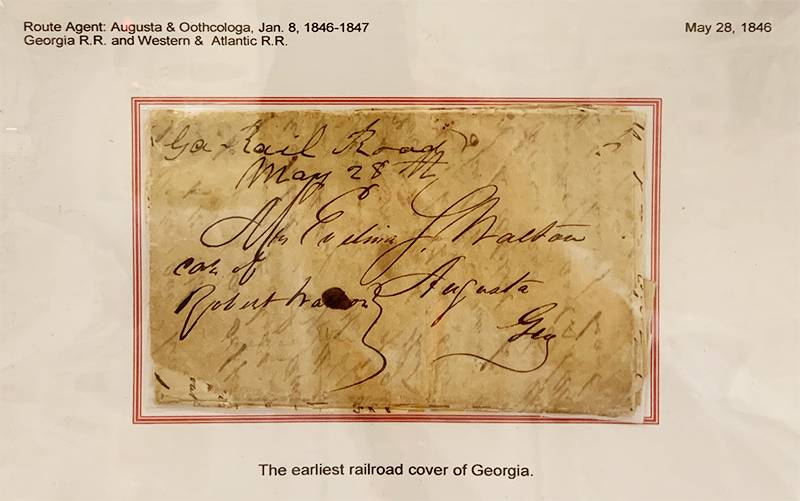 Route Agent: Augusta & Oothcologa, Jan. 8, 1846-1847
May 28, 1846
Georgia R.R. and Western & Atlantic R.R.
Ga Rail Road
May 28th
Mrs Evelina J. Walton
care of
Robert Walton
Augusta
Geo
The earliest railroad cover of Georgia.